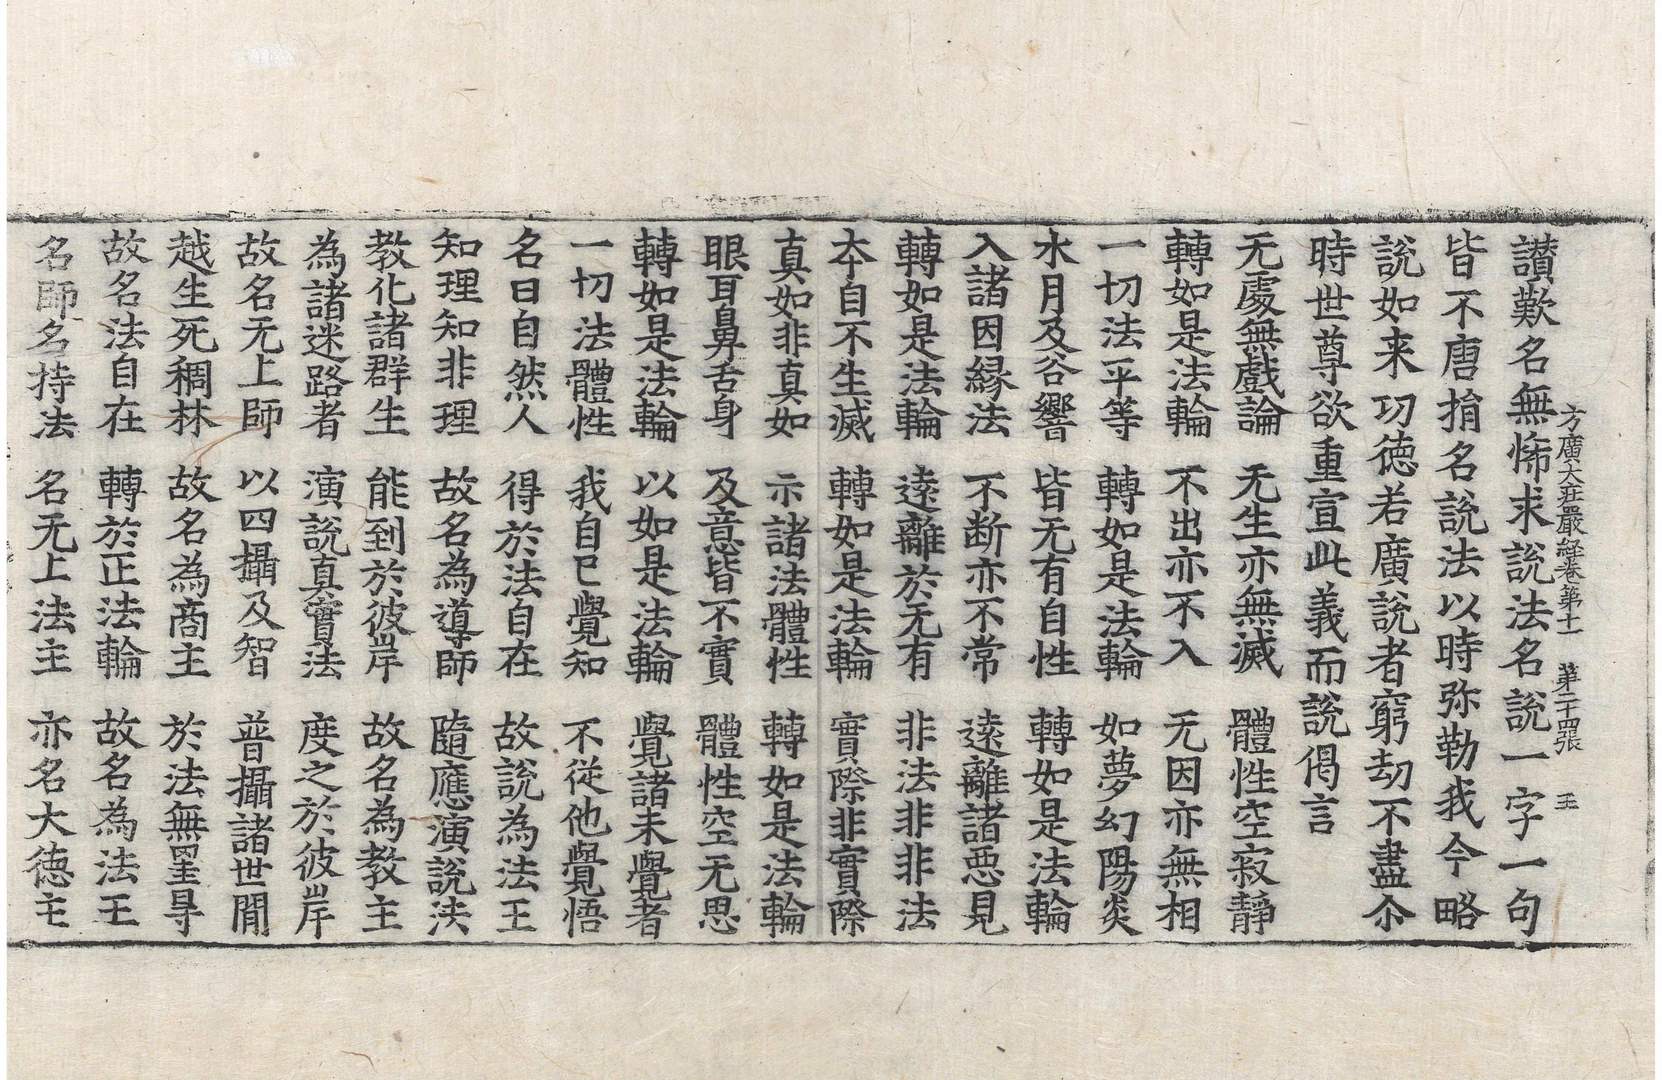 方廣大莊嚴経卷第十一 第二十四張 王
讃歎名無怖求說法名說一字一句
皆不唐捐名說法以時弥勒我今略
說如来功德若廣說者窮劫不盡尒
時世尊欲重宣此義而說偈言
无處無戲論 无生亦無滅 體性空寂靜
轉如是法輪 不出亦不入 无因亦無相
一切法平等 轉如是法輪 如夢幻陽炎
水月及谷響 皆无有自性 轉如是法輪
入諸因縁法 不断亦不常 遠離諸惡見
轉如是法輪 遠離於无有 非法非非法
夲自不生滅 轉如是法輪 實際非實際
真如非真如 示諸法體性 轉如是法輪
眼耳鼻舌身 及意皆不實 體性空无思
轉如是法輪 以如是法輪 覺諸未覺者
一切法體性 我自已覺知 不從他覺悟
名曰自然人 得於法自在 故說為法王
知理知非理 故名為導師 隨應演說法
教化諸群生 能到於彼岸 故名為教主
為諸迷路者 演說真實法 度之於彼岸
故名无上師 以四攝及智 普攝諸世閒
越生死稠林 故名為商主 於法無罣㝵
故名法自在 轉於正法輪 故名為法王
名師名持法 名无上法主 亦名大德主